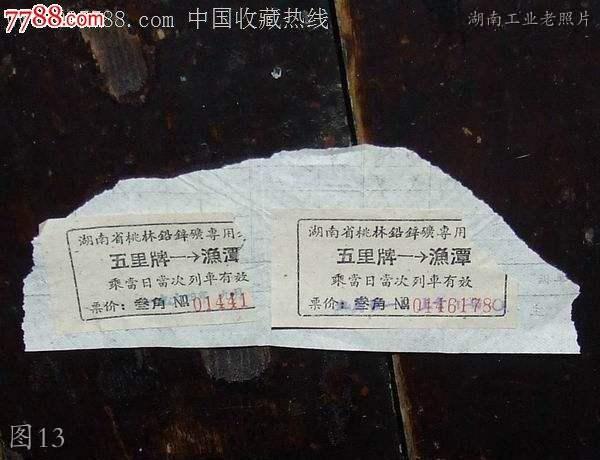 7788.com
7788.com 中国收藏热线
湖南工业老照片
湖南省桃林鉛鋅礦專用
五里牌→漁潭
乘當日當次列車有效
票价：叁角 №01441
湖南省桃林鉛鋅礦專用
五里牌→漁潭
乘當日當次列車有效
票价：叁角 №
图13